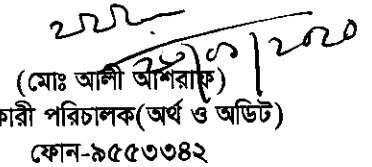 (মোঃ আলী আশরাফ)
কারী পরিচালক(অর্থ ও অডিট)
ফোন-৯৫৫৩৩৪২